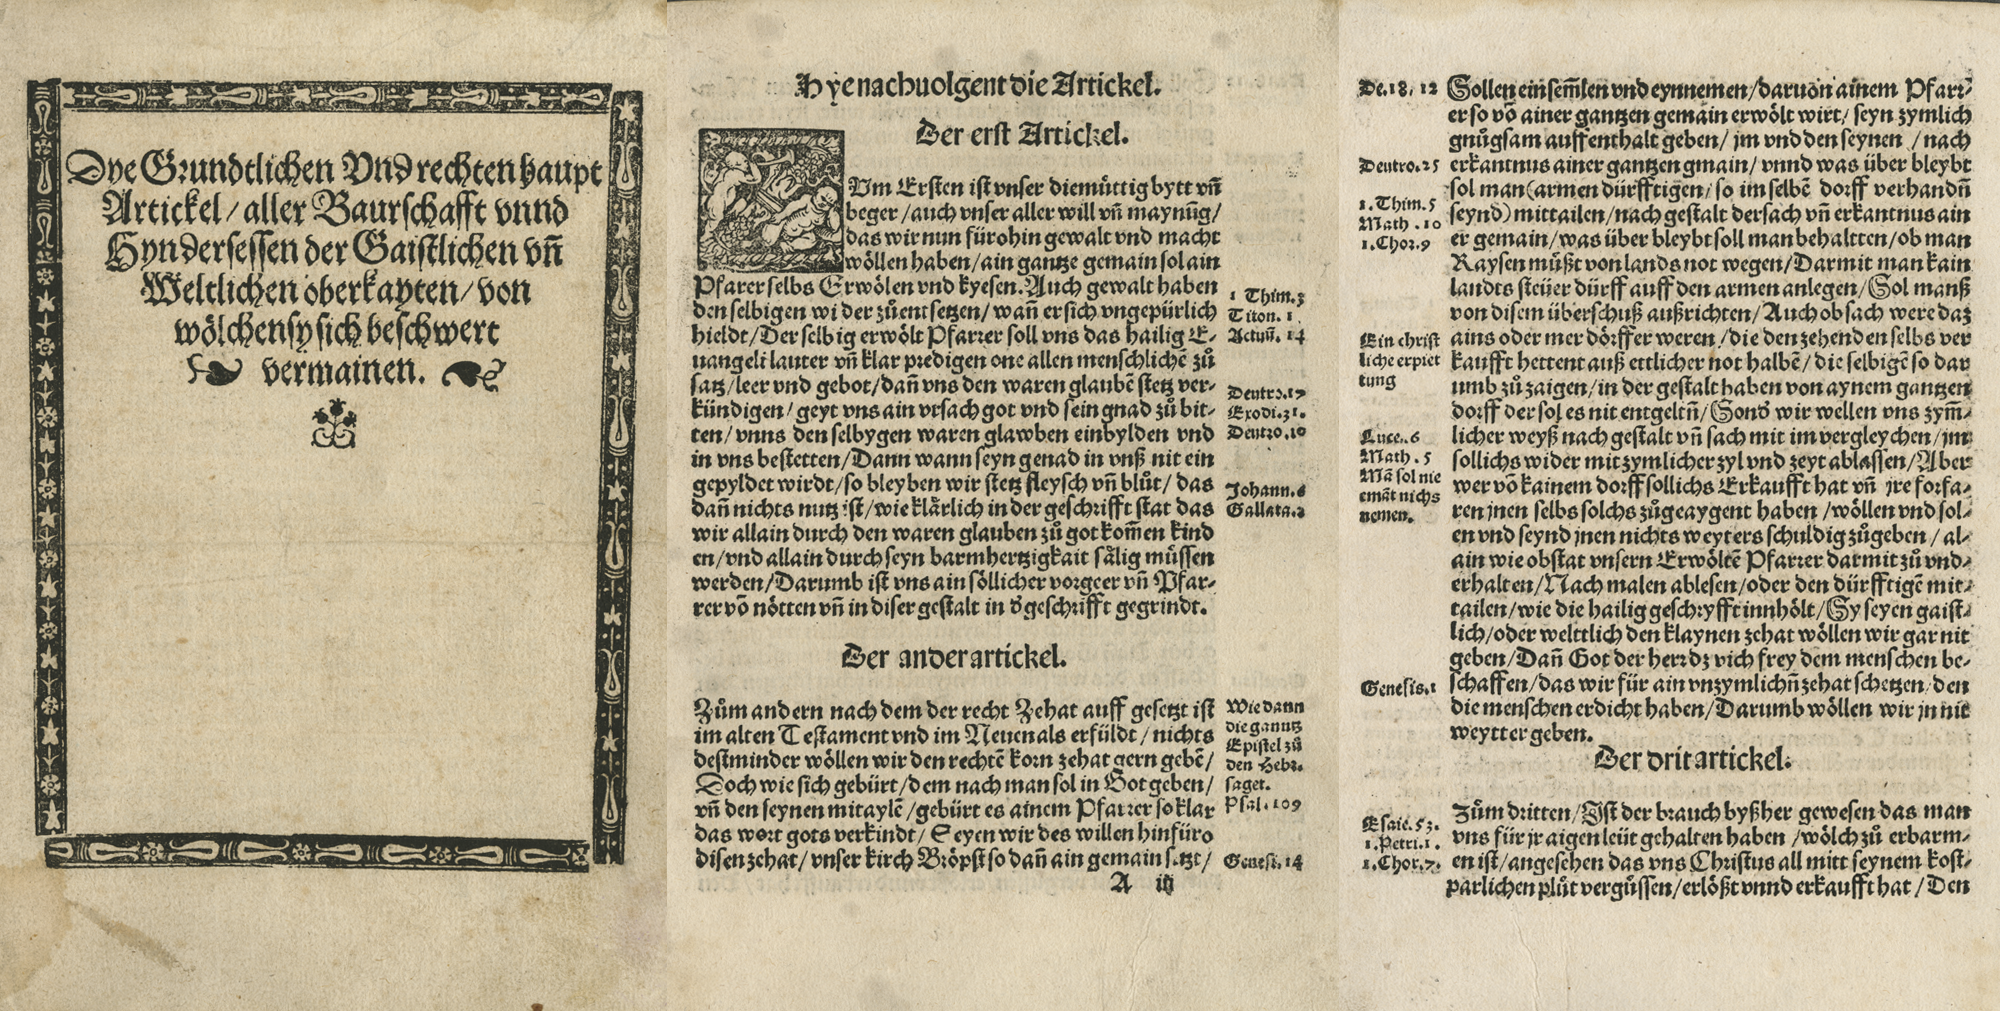 Dye Grundtlichen Vnd rechten haupt
Artickel / aller Baurschafft vnnd
Hyndersessen der Gaistlichen vn̄
Weltlichen oberkayten / von
wölchen sy sich beschwert
vermainen.
Hye nachuolgent die Artickel.
Der erst Artickel.
Vm Ersten ist vnser diemüttig bytt vn̄
beger / auch vnser aller will vn̄ maynūg /
das wir nun fürohin gewalt vnd macht
wöllen haben / ain gantze gemain sol ain
Pfarer selbs Erwölen vnd kyesen. Auch gewalt haben
den selbigen wider zůentsetzen / wan̄ er sich vngepürlich
hieldt / Der selbig erwölt Pfarrer soll vns das hailig E-
uangeli lauter vn̄ klar predigen one allen menschlichē zů
satz / leer vnd gebot / dan̄ vns den waren glaubē stetz ver-
kündigen / geyt vns ain vrsach got vnd sein gnad zů bit-
ten / vnns den selbygen waren glawben einbylden vnd
in vns bestetten / Dann wann seyn genad in vnß nit ein
gepyldet wirdt / so bleyben wir stetz fleysch vn̄ blůt / das
dan̄ nichts nutz ist / wie klärlich in der geschrifft stat das
wir allain durch den waren glauben zů got kom̄en kind
en / vnd allain durch seyn barmhertzigkait sälig müssen
werden / Darumb ist vns ain söllicher vorgeer vn̄ Pfar-
rer vō nötten vn̄ in diser gestalt in d̓ geschrifft gegrindt.
1 Thim. 3
Titon. 1
Actuū. 14
Deutro. 17
Exodi. 31.
Deutro. 10
Johann. 6
Gallata. 2
Der ander artickel.
Zům andern nach dem der recht Zehat auff gesetzt ist
im alten Testament vnd im Neuen als erfüldt / nichts
destminder wöllen wir den rechtē korn zehat gern gebē /
Doch wie sich gebürt / dem nach man sol in Got geben /
vn̄ den seynen mitaylē / gebürt es ainem Pfarrer so klar
das wort gots verkindt / Seyen wir des willen hinfüro
disen zehat / vnser kirch Bröpst so dan̄ ain gemain setzt /
Wie dann
die gantz
Epistel zů
den Hebr.
saget.
Psal. 109
Genesi. 14
A iij
De. 18. 12
Deutro. 25
1. Thim. 5
Math. 10
1. Chor. 9
Ein christ
liche erpiet
tung
Luce. 6
Math. 5
Mā sol nie
emāt nichs
nemen.
Genesis. 1
Sollen einsem̄len vnd eynnemen / daruon ainem Pfarr-
er so vō ainer gantzen gemain erwölt wirt / seyn zymlich
gnůgsam auffenthalt geben / jm vnd den seynen / nach
erkantnus ainer gantzen gmain / vnnd was über bleybt
sol man (armen dürfftigen / so im selbē dorff verhandn̄
seynd) mittailen / nach gestalt der sach vn̄ erkantnus ain
er gemain / was über bleybt soll man behaltten / ob man
Raysen müßt von lands not wegen / Darmit man kain
landts steüer dürff auff den armen anlegen / Sol manß
von disem überschuß außrichten / Auch ob sach were daz
ains oder mer dörffer weren / die den zehenden selbs ver
kaufft hettent auß ettlicher not halbē / die selbigē so dar
umb zů zaigen / in der gestalt haben von aynem gantzen
dorff der sol es nit entgeltn̄ / Sond̓ wir wellen vns zym̄-
licher weyß nach gestalt vn̄ sach mit im vergleychen / jm
sollichs wider mit zymlicher zyl vnd zeyt ablassen / Aber
wer vō kainem dorff sollichs Erkaufft hat vn̄ jre forfa-
ren jnen selbs solchs zůgeaygent haben / wöllen vnd sol-
en vnd seynd jnen nichts weyters schuldig zůgeben / al-
ain wie obstat vnsern Erwöltē Pfarrer darmit zů vnd-
erhalten / Nach malen ablesen / oder den dürfftigē mit-
tailen / wie die hailig geschryfft innhölt / Sy seyen gaist-
lich / oder welttlich den klaynen zehat wöllen wir gar nit
geben / Dan̄ Got der herr dz vich frey dem menschen be-
schaffen / das wir für ain vnzymlichn̄ zehat schetzen / den
die menschen erdicht haben / Darumb wöllen wir jn nit
weytter geben.
Der drit artickel.
Zům dritten / Jst der brauch byßher gewesen das man
vns für jr aigen leüt gehalten haben / wölch zů erbarm-
en ist / angesehen das vns Christus all mitt seynem kost-
parlichen plůt vergůssen / erlößt vnnd erkaufft hat / Den
Esaie. 53.
1. Petri. 1.
1. Chor. 7.